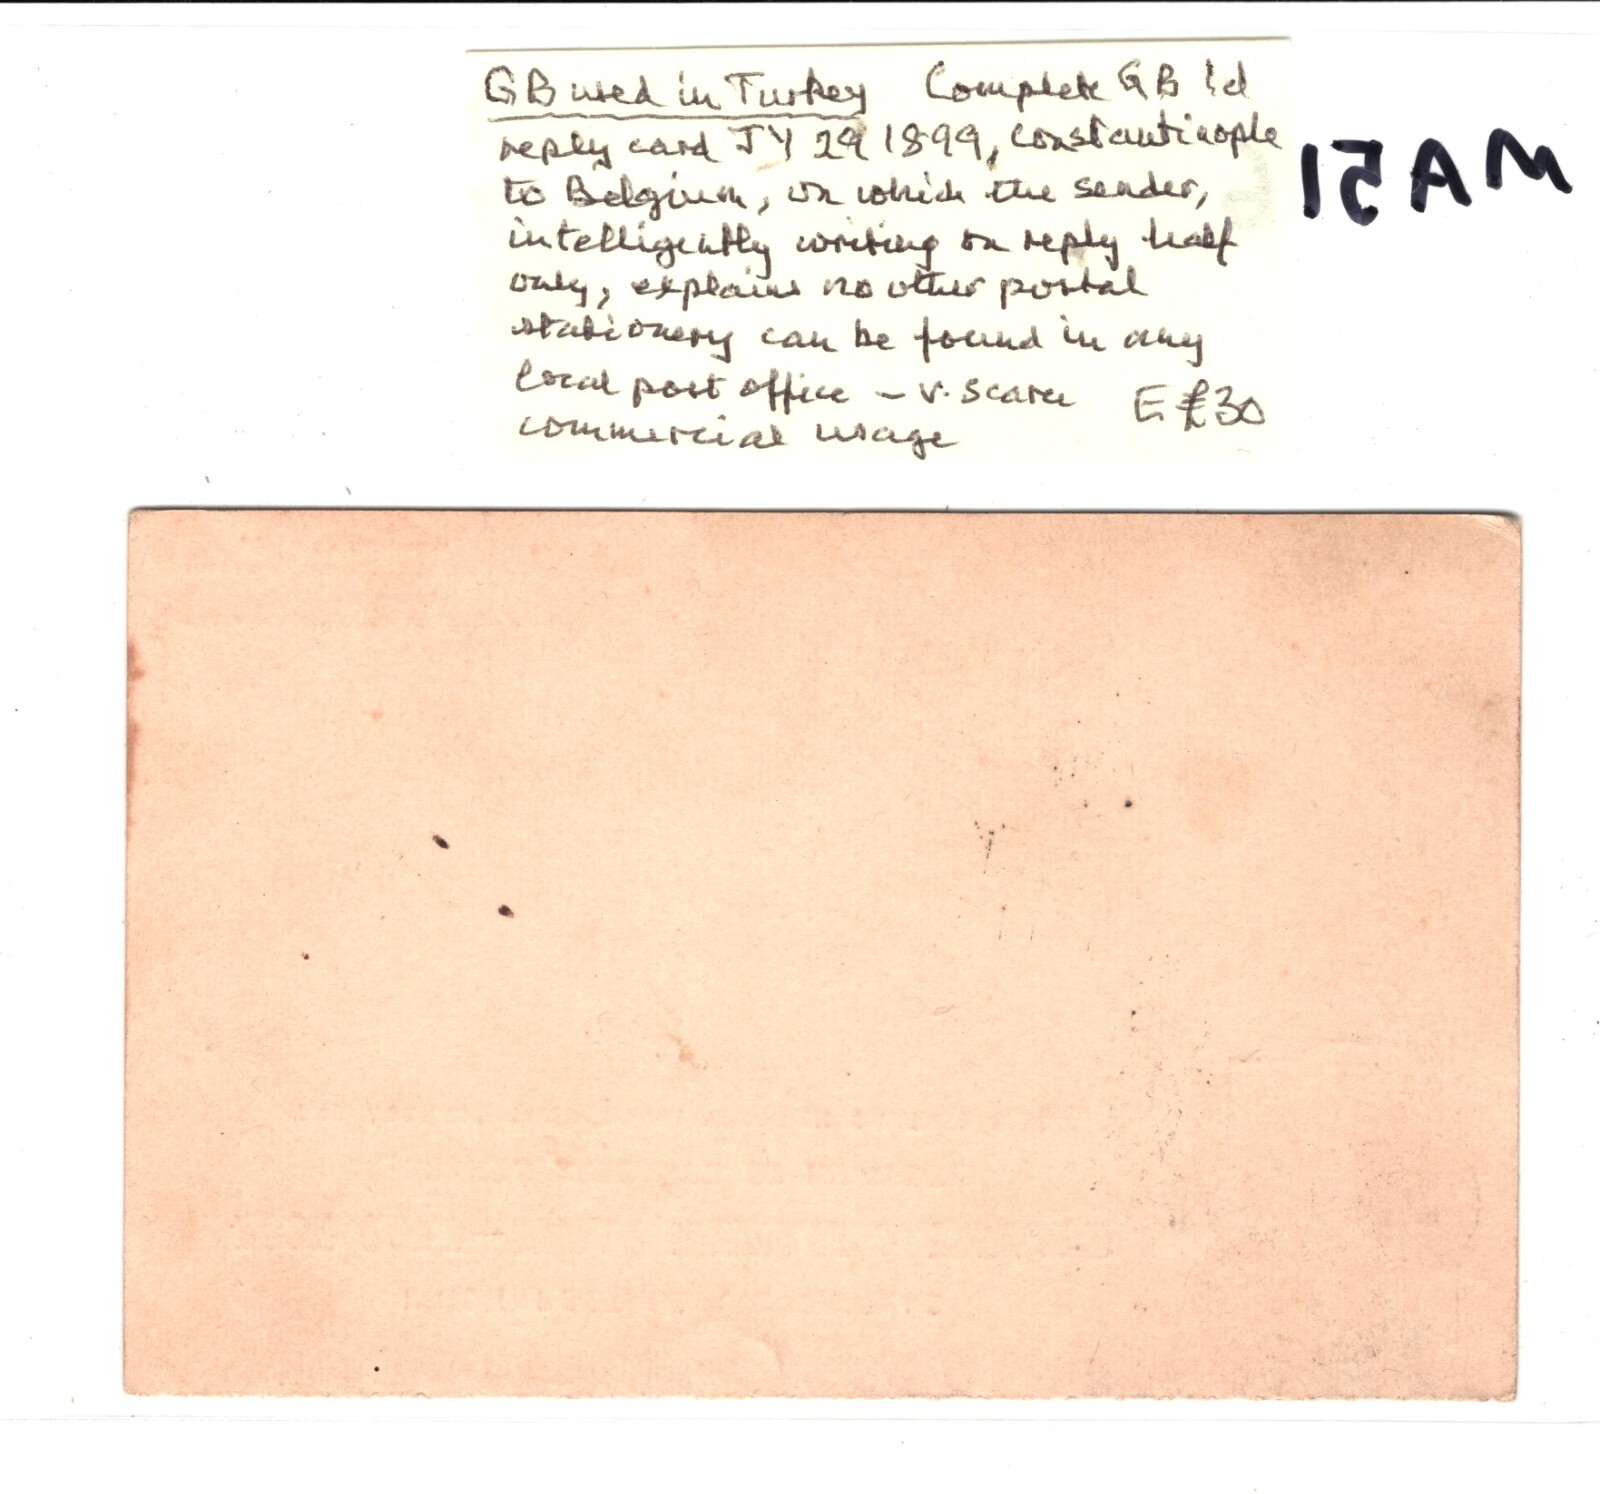 GB used in Turkey Complete GB 1d
reply card JY 29 1899, Constantinople
to Belgium, on which the sender,
intelligently writing on reply half
only, explains no other postal
stationery can be found in any
local post office - v. scarce
commercial usage E £30
MA51